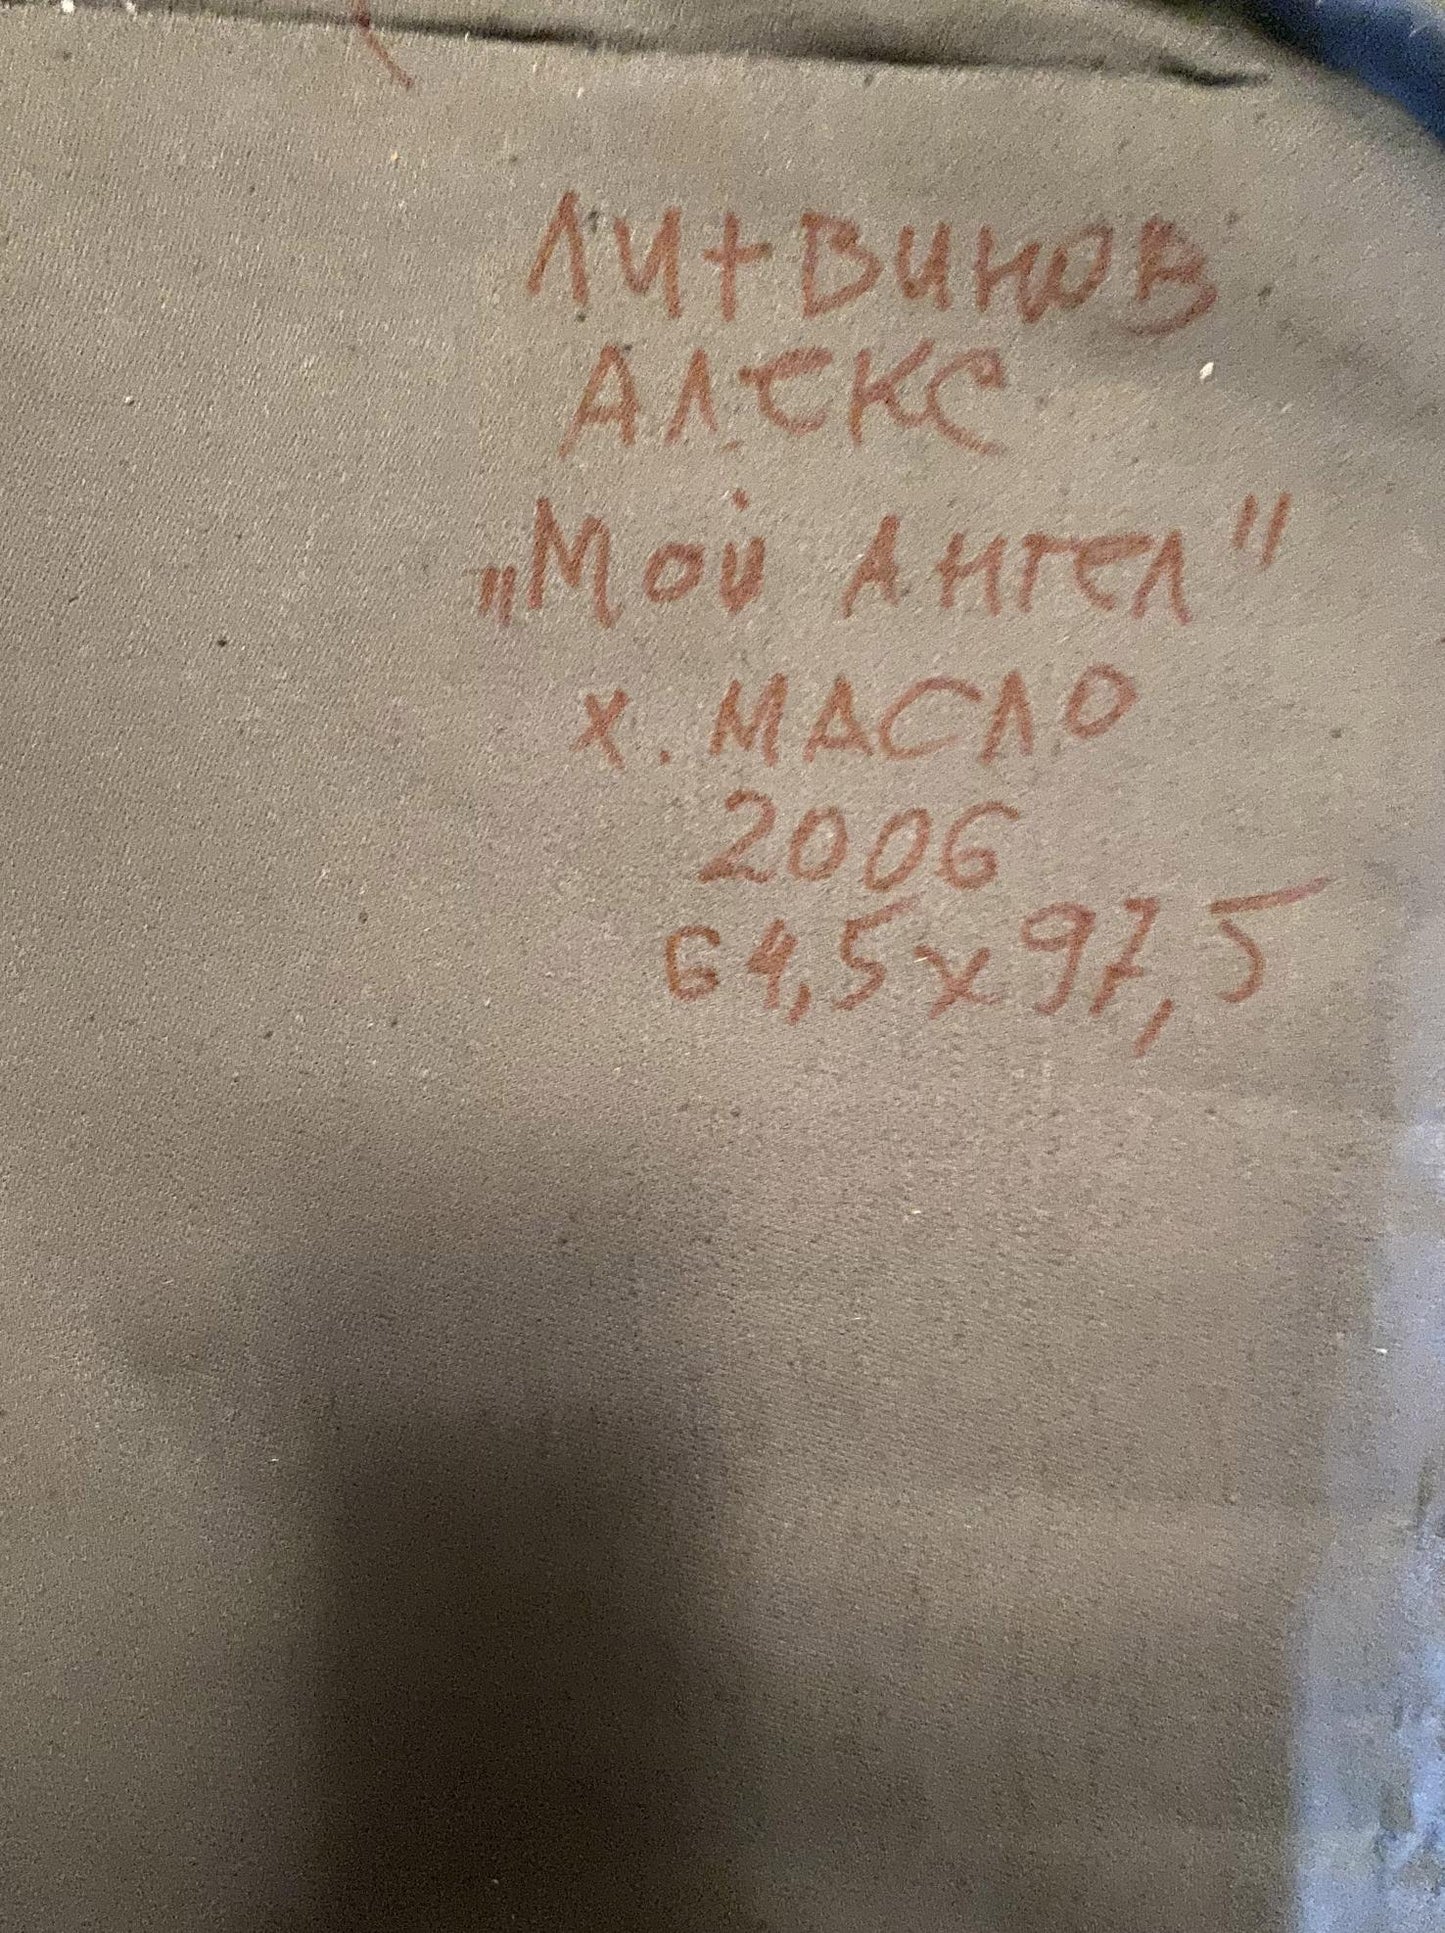 ЛИТВИНОВ
АЛЕКС
„Мой Ангел"
х. МАСЛО
2006
64,5х97,5